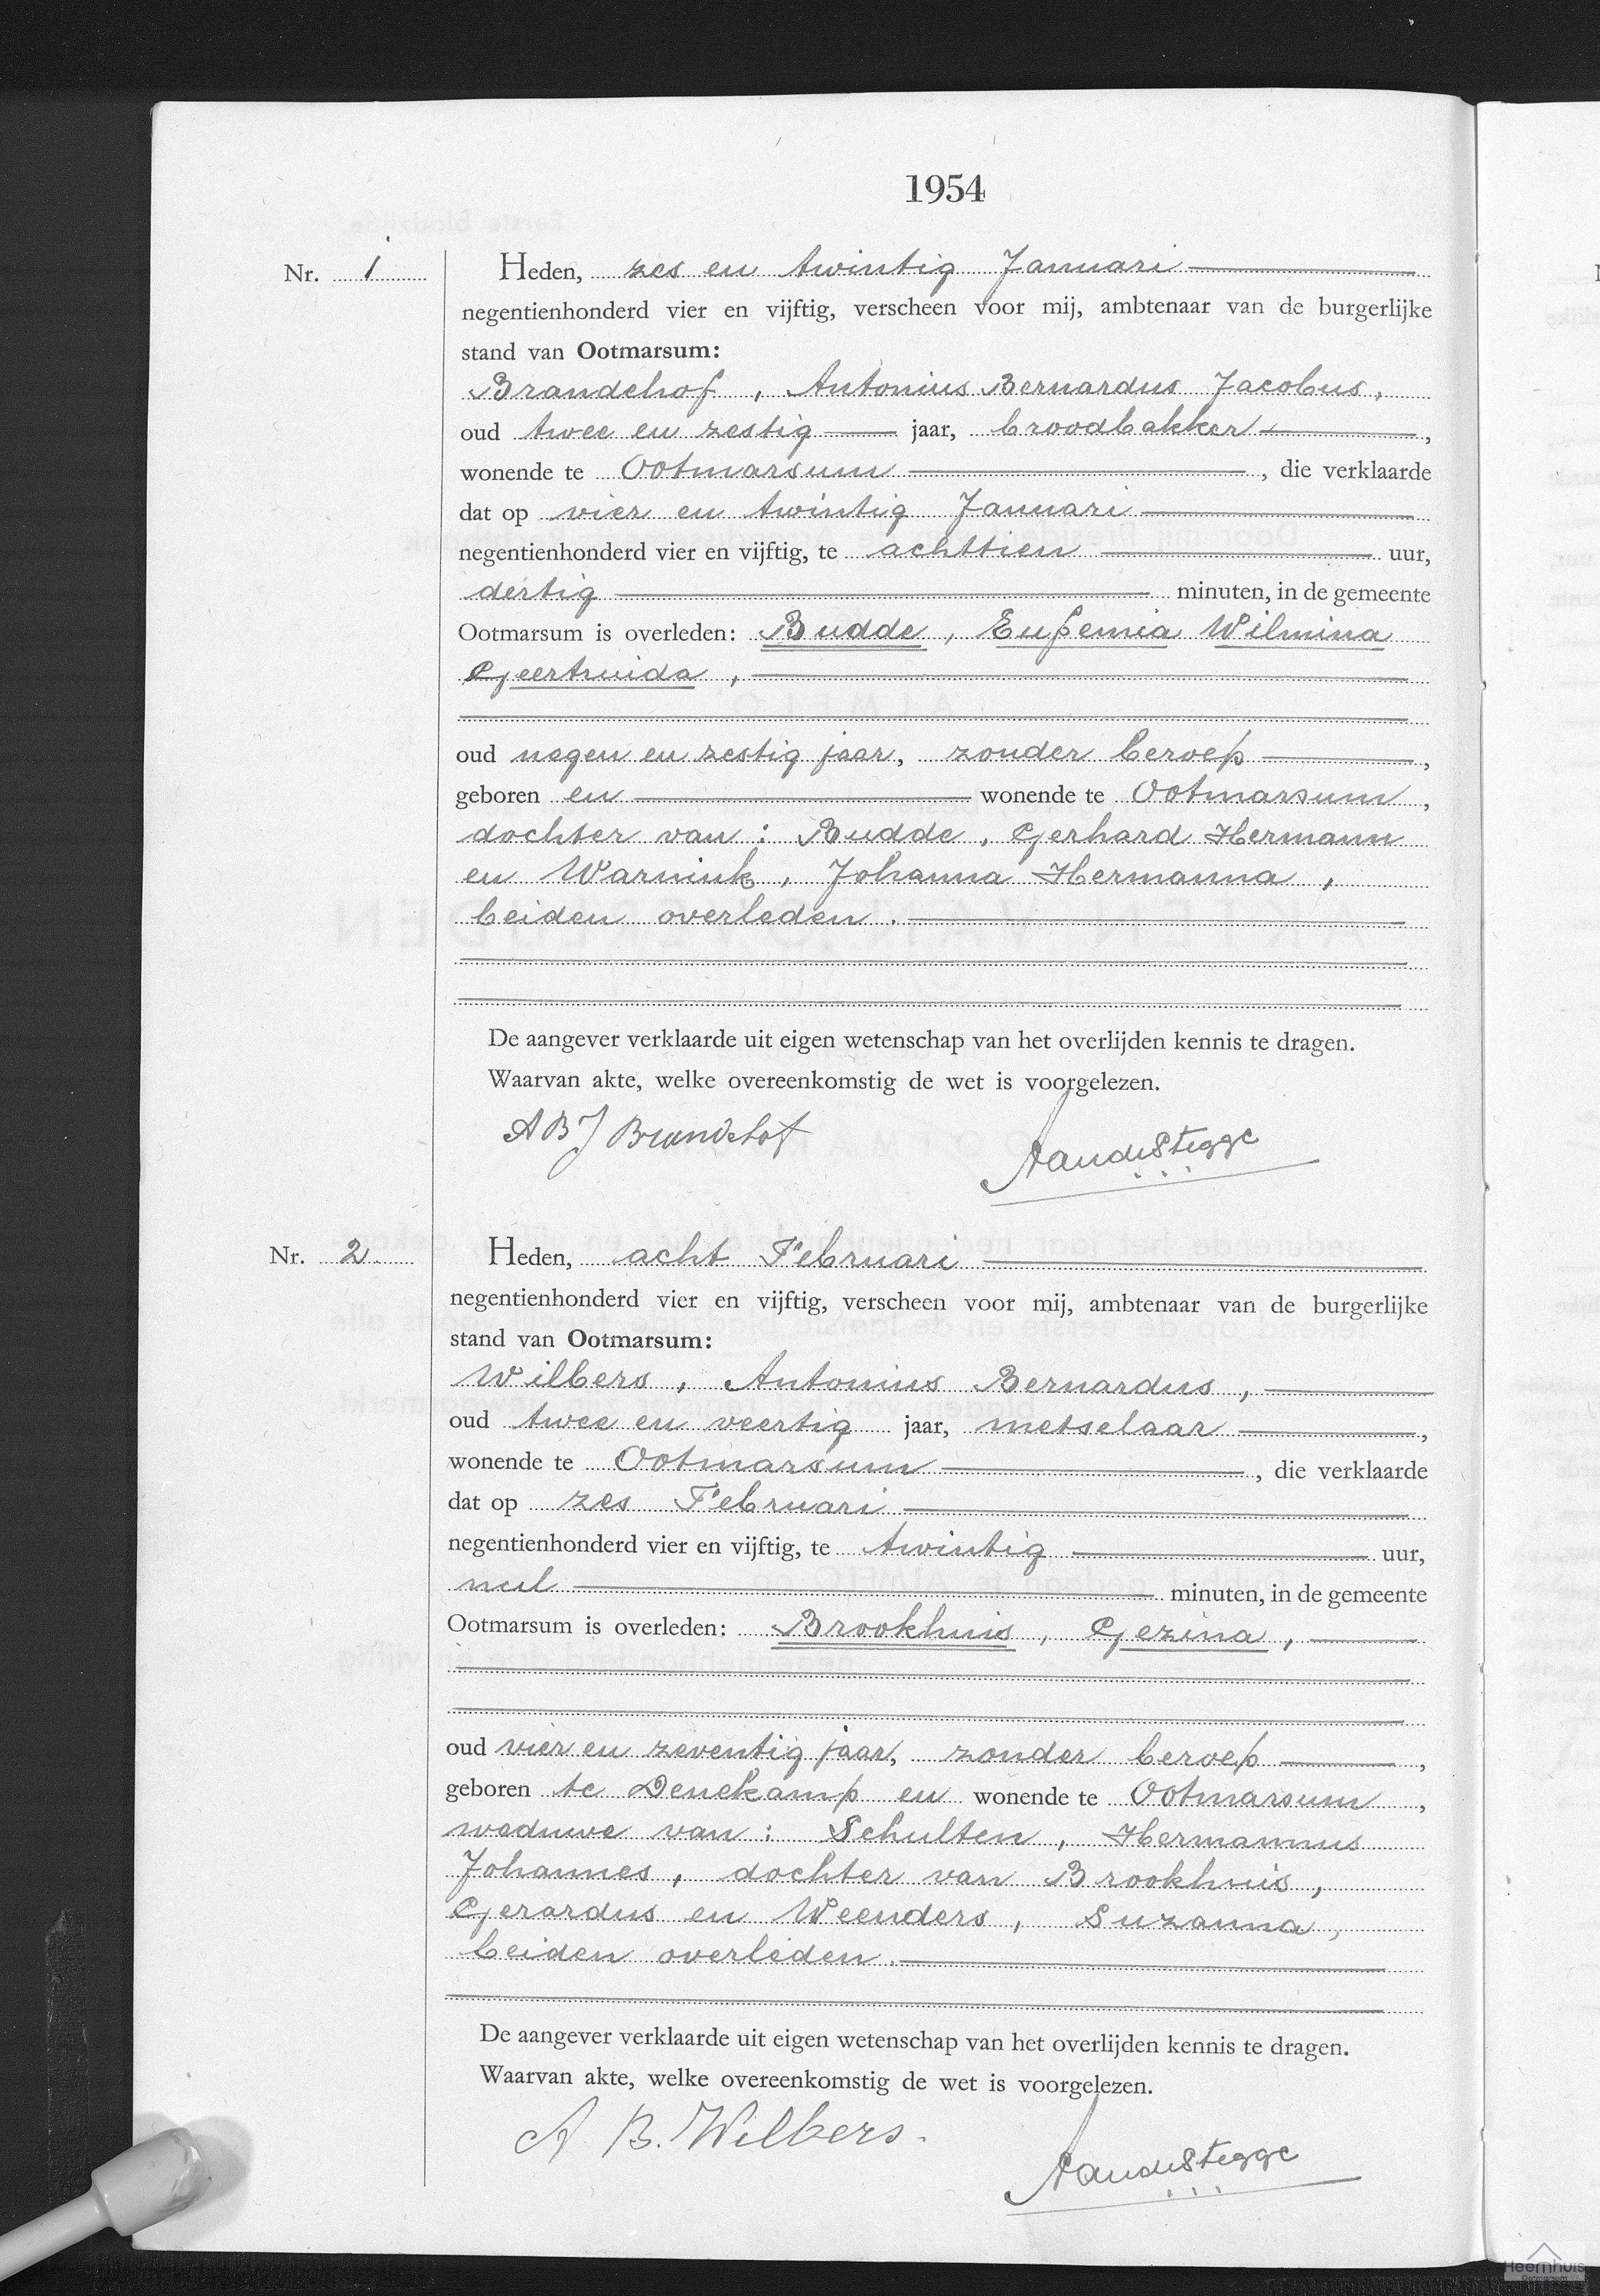 1954
Nr. 1
Heden, zes en twintig Januari
negentienhonderd vier en vijftig, verscheen voor mij, ambtenaar van de burgerlijke
stand van Ootmarsum:
Brandehof, Antonius Bernardus Jacobus,
oud twee en zestig jaar, broodbakker,
wonende te Ootmarsum, die verklaarde
dat op vier en twintig Januari
negentienhonderd vier en vijftig, te achttien uur,
dertig minuten, in de gemeente
Ootmarsum is overleden: Budde, Eufemia Wilmina
Geertruida,
oud negen en zestig jaar, zonder beroep,
geboren en wonende te Ootmarsum,
dochter van: Budde, Gerhard Hermann
en Warnink, Johanna Hermanna,
beiden overleden.
De aangever verklaarde uit eigen wetenschap van het overlijden kennis te dragen.
Waarvan akte, welke overeenkomstig de wet is voorgelezen.
A B J Brandehof
Nr. 2.
Heden, acht Februari
negentienhonderd vier en vijftig, verscheen voor mij, ambtenaar van de burgerlijke
stand van Ootmarsum:
Wilbers, Antonius Bernardus,
oud twee en veertig jaar, metselaar,
wonende te Ootmarsum, die verklaarde
dat op zes Februari
negentienhonderd vier en vijftig, te twintig uur,
nul minuten, in de gemeente
Ootmarsum is overleden: Brookhuis, Gezina,
oud vier en zeventig jaar, zonder beroep,
geboren te Denekamp en wonende te Ootmarsum,
weduwe van: Schulten, Hermannus
Johannes, dochter van Brookhuis,
Gerardus en Weenders, Suzanna,
beiden overleden.
De aangever verklaarde uit eigen wetenschap van het overlijden kennis te dragen.
Waarvan akte, welke overeenkomstig de wet is voorgelezen.
A. B. Wilbers.
Heemhuis
Ootmarsum